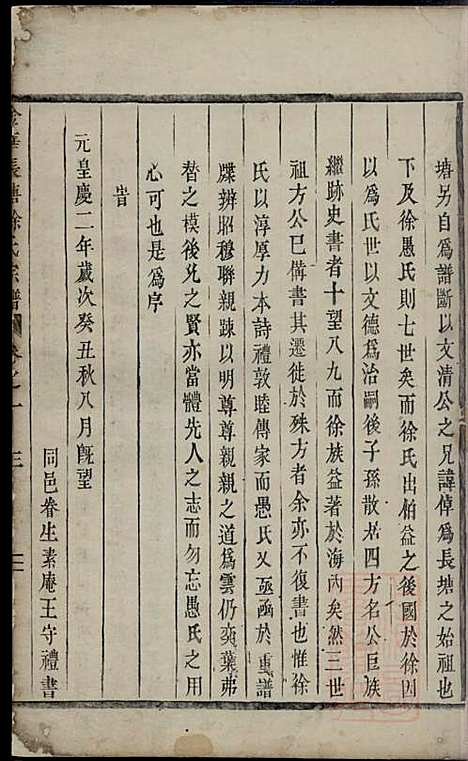 塘另自爲譜斷以文清公之兄諱倬爲長塘之始祖也
下及徐愚氏則七世矣而徐氏出柏益之後國於徐因
以爲氏世以文德爲治嗣後子孫散居四方名公巨族
繼跡史書者十望八九而徐族益著於海內矣然三世
祖方公已備書其遷徙於殊方者余亦不復書也惟徐
氏以淳厚力本詩禮敦睦傳家而愚氏又亟亟於重譜
牒辨昭穆聯親踈以明尊尊親親之道爲雲仍奕葉弗
替之模後兄之賢亦當體先人之志而勿忘愚氏之用
心可也是爲序
旹
元皇慶二年歲次癸丑秋八月旣望
同邑眷生素庵王守禮書
金華長塘徐氏宗譜 卷之一 三